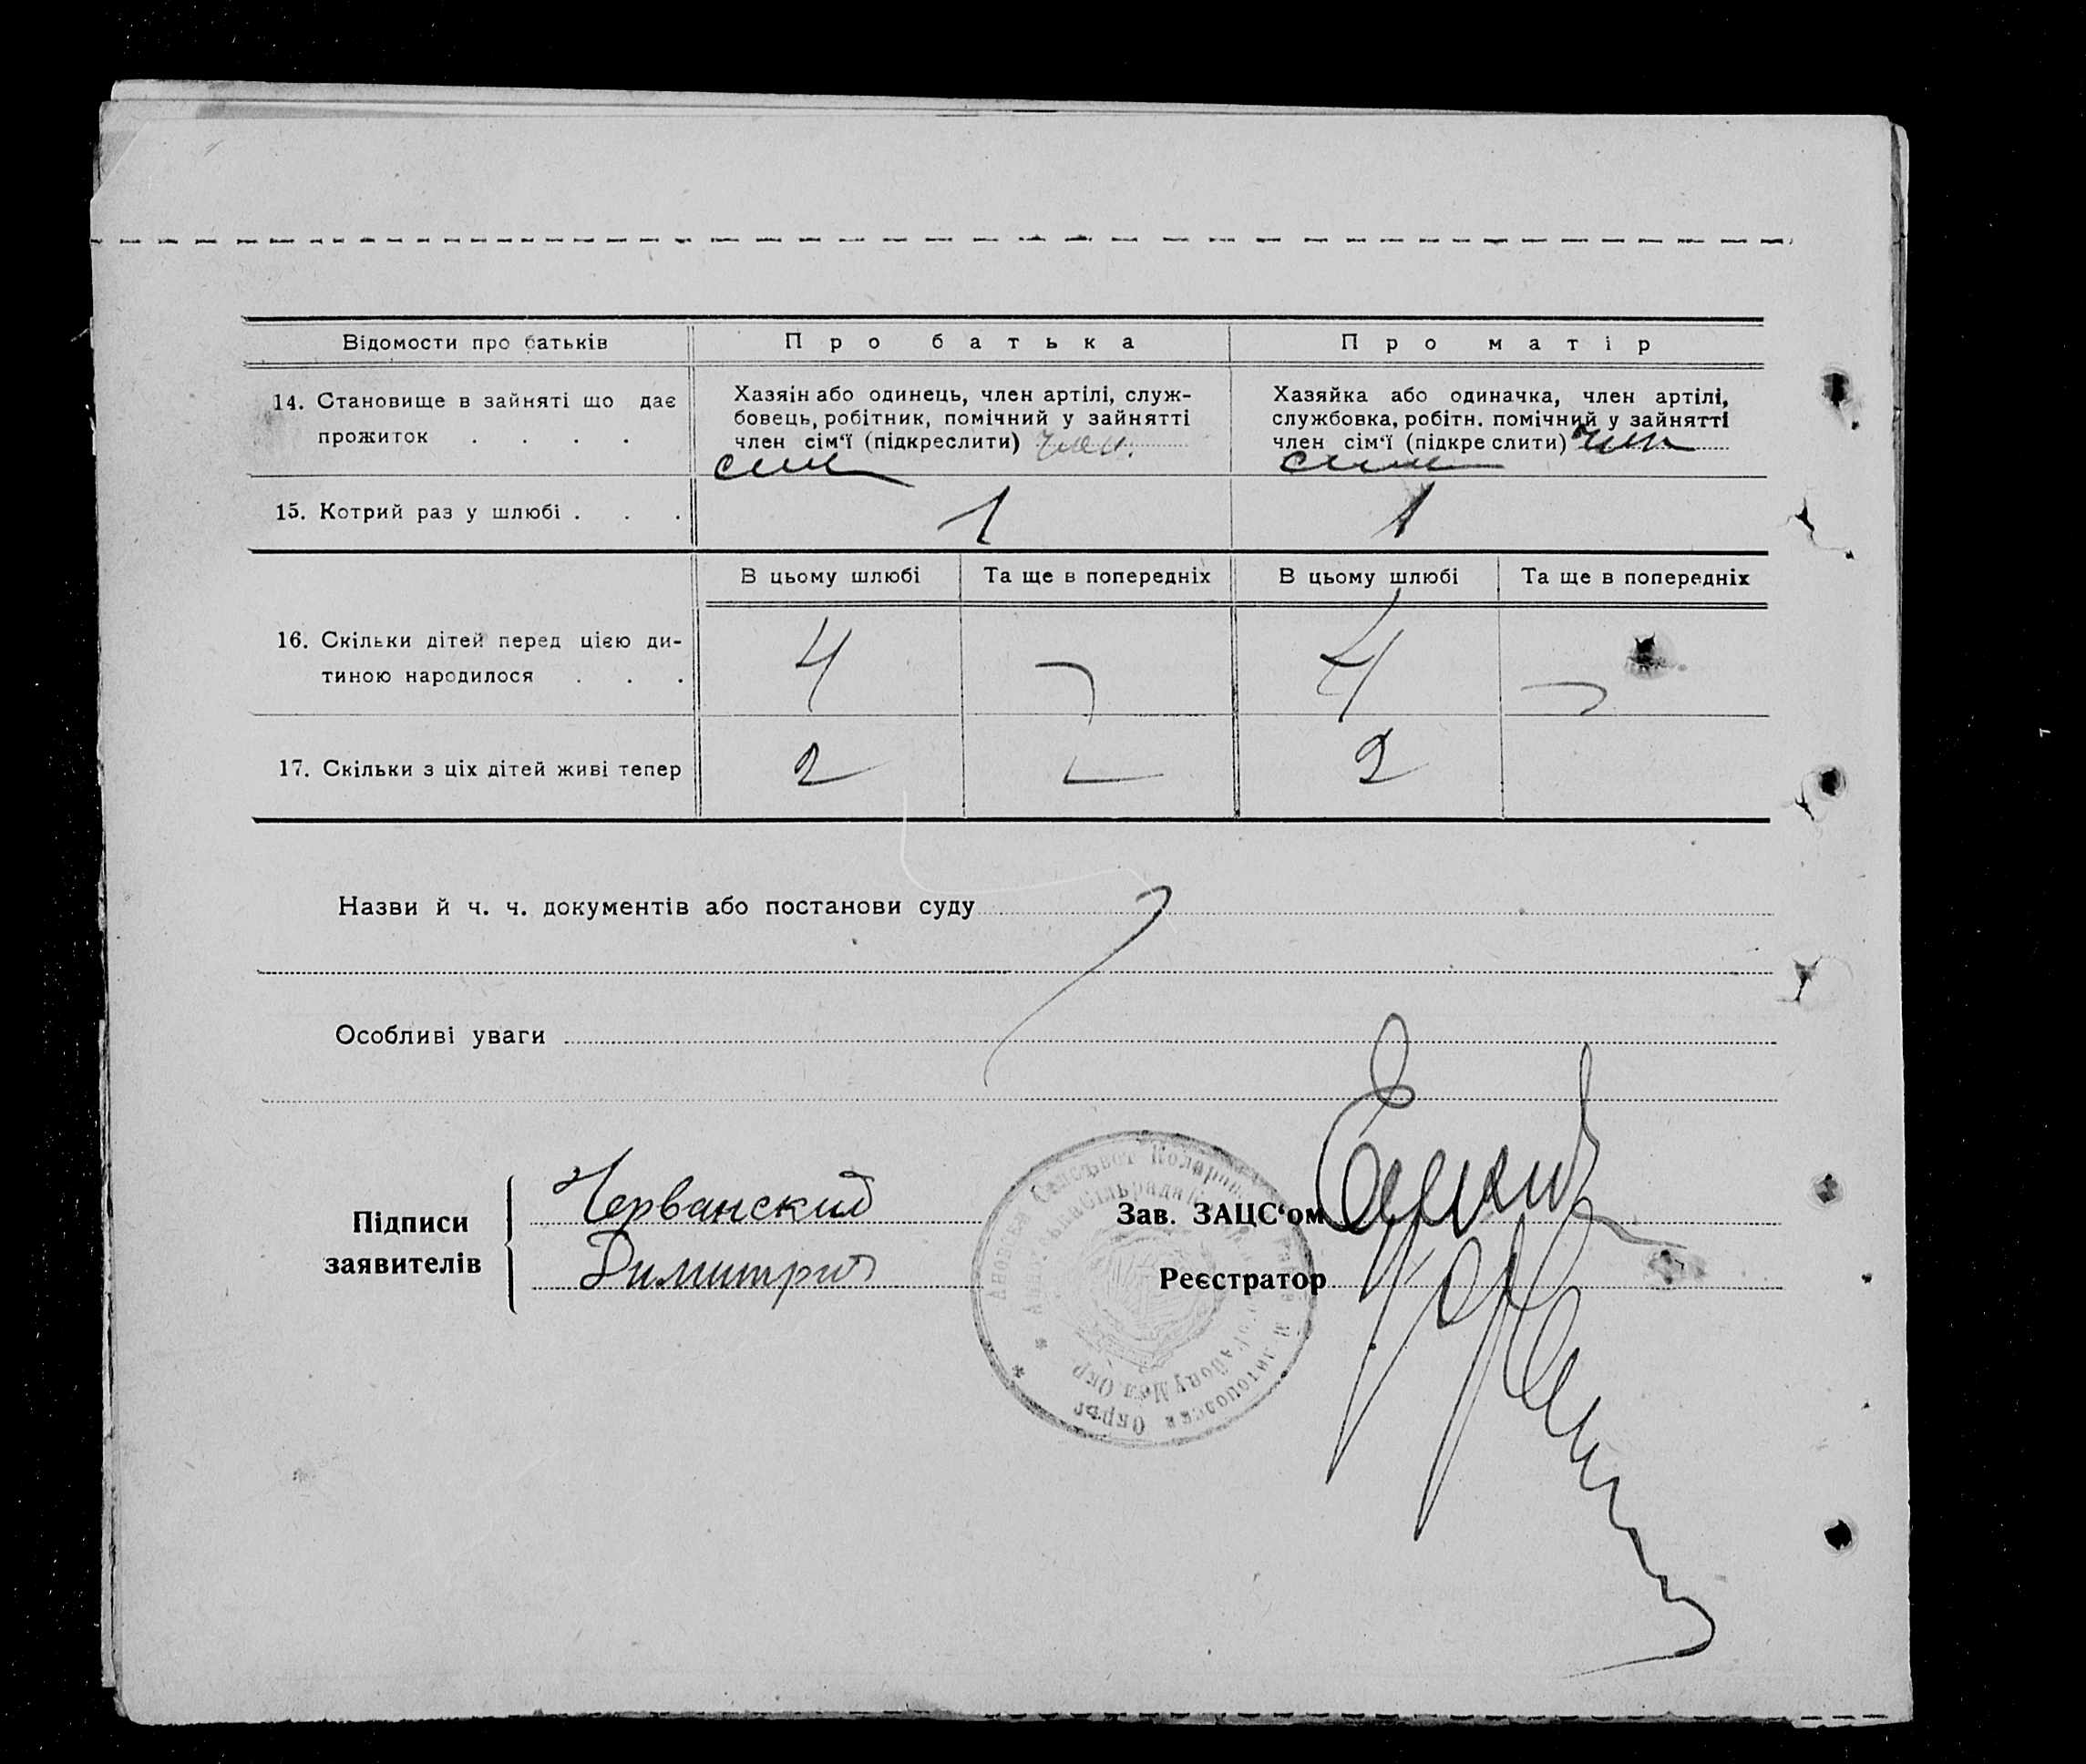 Відомости про батьків
Про батька
Про матір
14. Становище в зайняті що дає
прожиток . . . .
Хазяін або одинець, член артілі, служ-
бовець, робітник, помічний у зайнятті
член сім‘ї (підкреслити) член.
сем
Хазяйка або одиначка, член артілі,
службовка, робітн. помічний у зайнятті
член сім‘ї (підкре слити) член
сем
15. Котрий раз у шлюбі . . .
1
1
В цьому шлюбі
Та ще в попередніх
В цьому шлюбі
Та ще в попередніх
16. Скільки дітей перед цією ди-
тиною народилося . . .
4
4
17. Скільки з ціх дітей живі тепер
2
2
Назви й ч. ч. документів або постанови суду
Особливі уваги
Підписи
заявителів
Черванский
Димитрий
Зав. ЗАЦС‘ом
Реєстратор